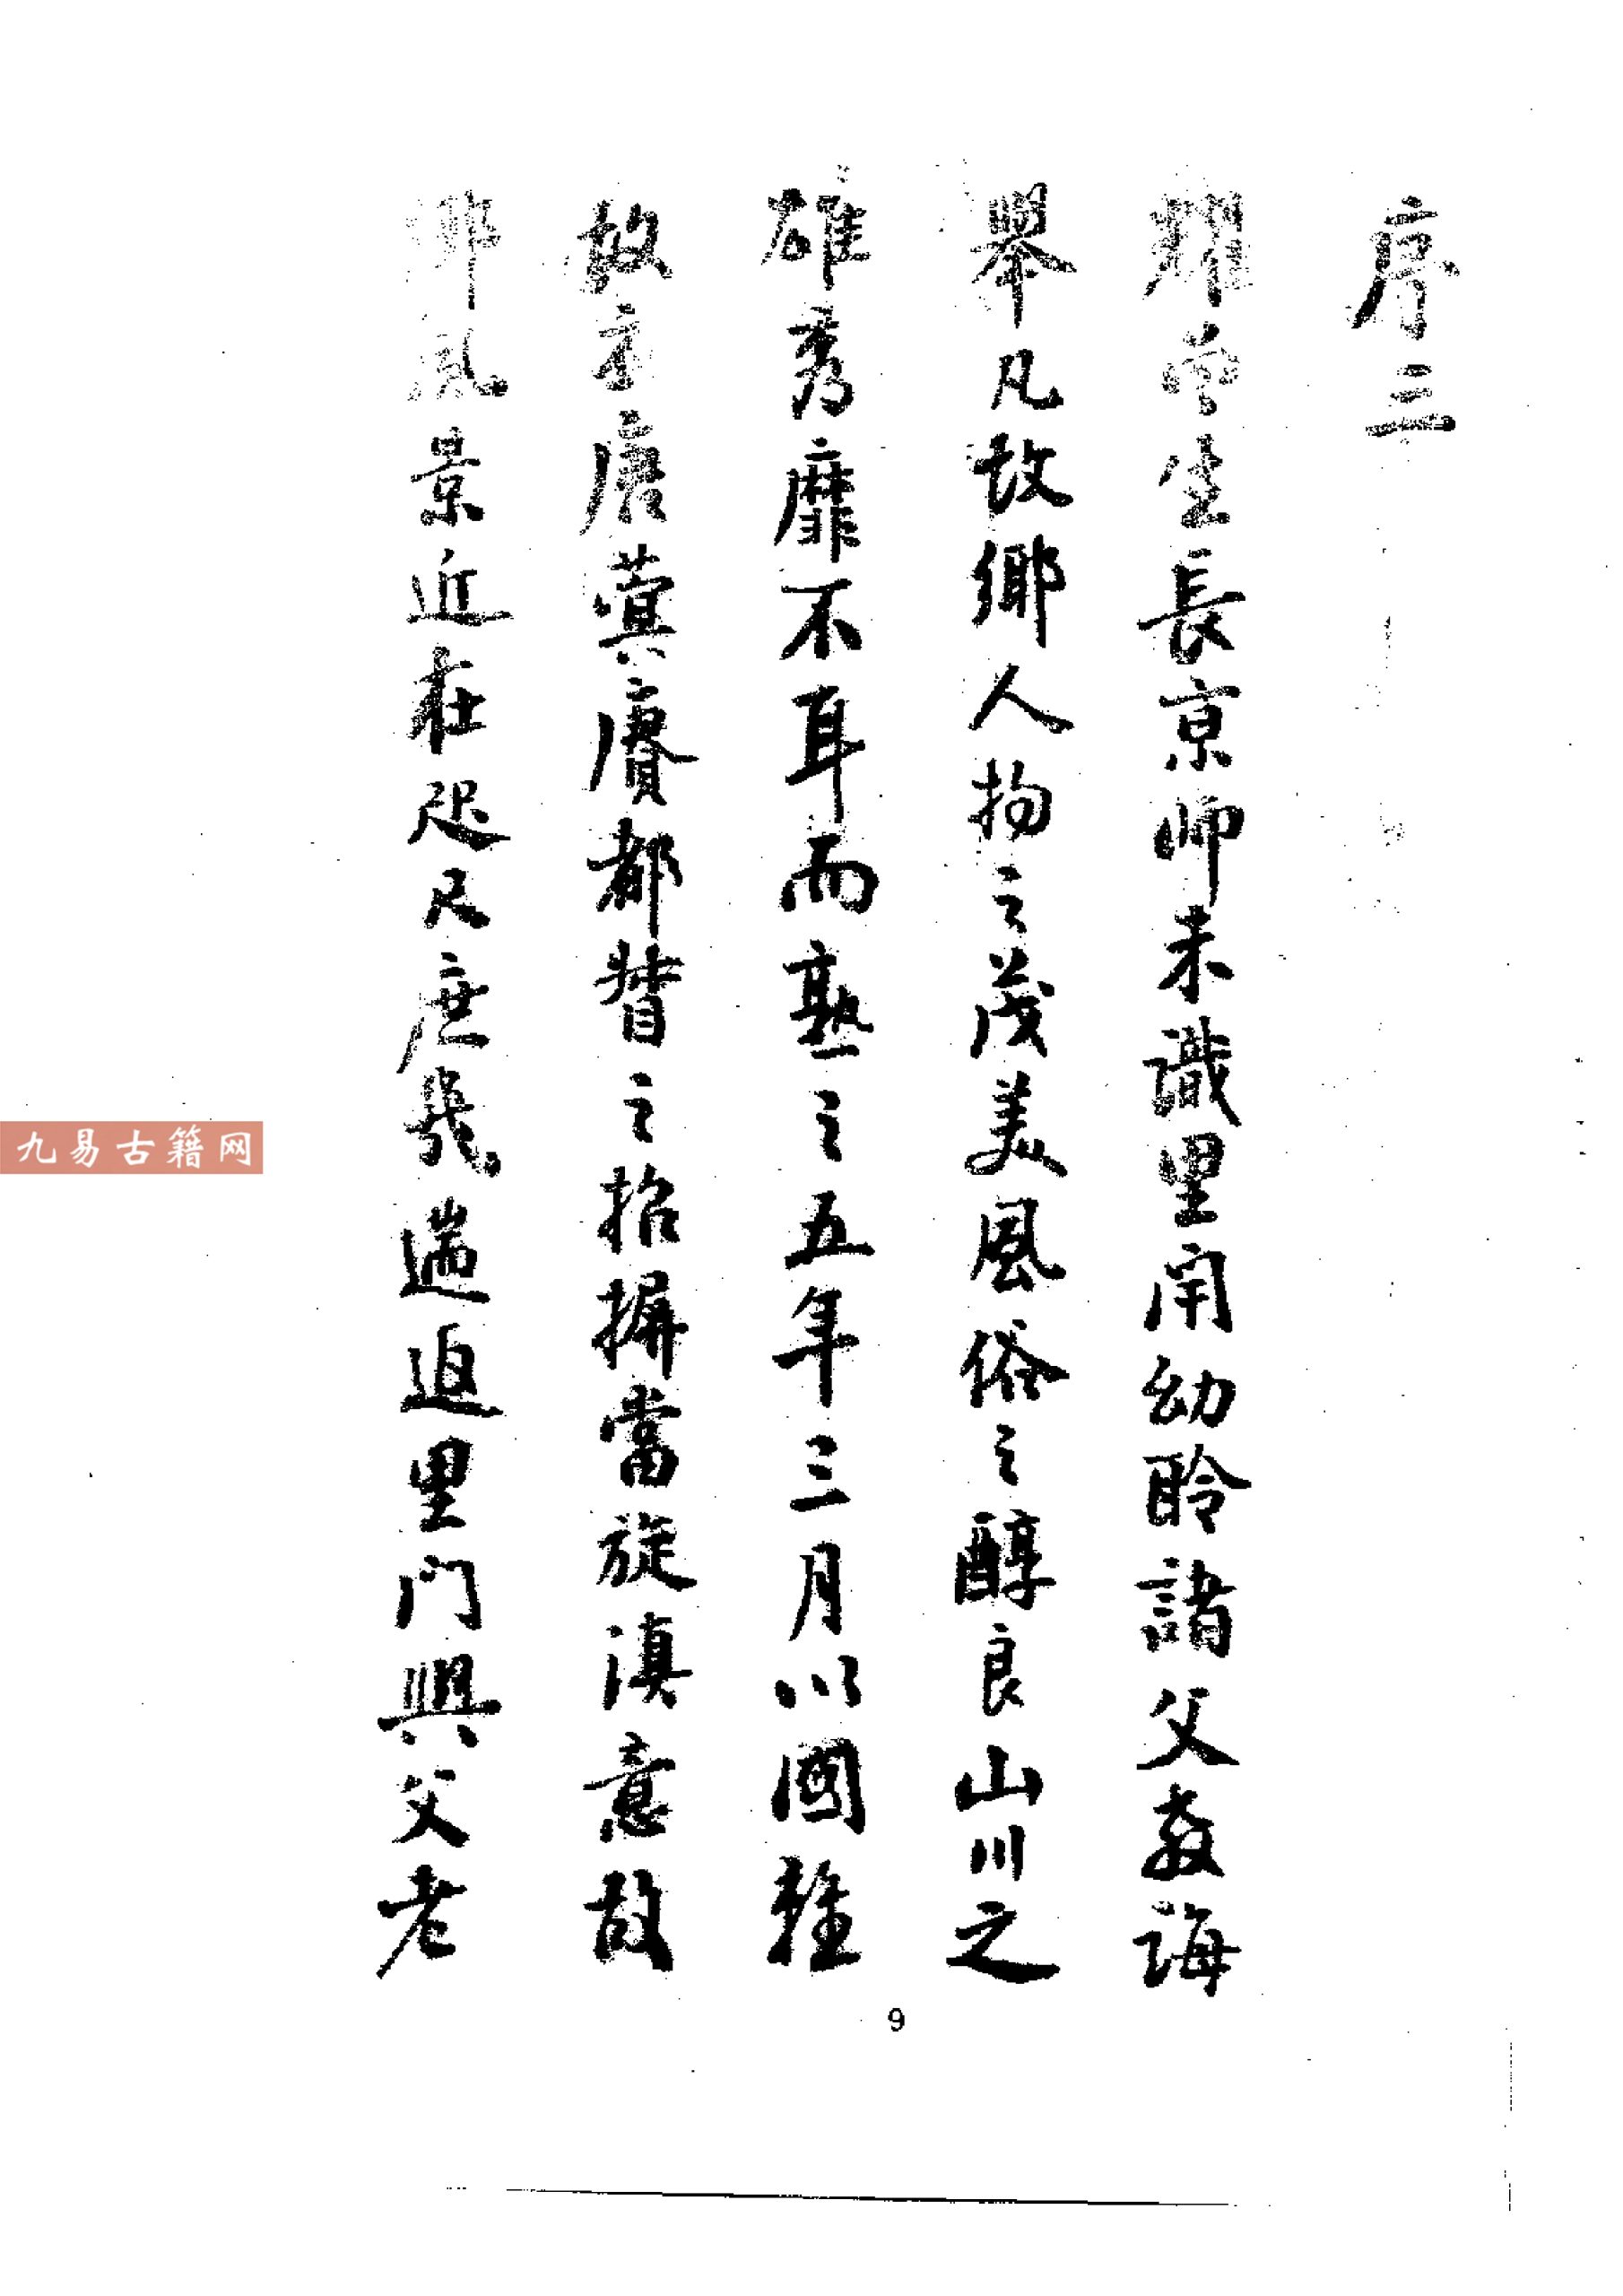 序三
耀曾生長京師未識里閈幼聆諸父教誨
舉凡故鄉人物之茂美風俗之醇良山川之
雄秀靡不耳而熟之五年三月以國難
故主唐蓂賡都督之招摒當旋滇意故
鄉風景近在咫尺庶幾遄返里門與父老
9
九易古籍网